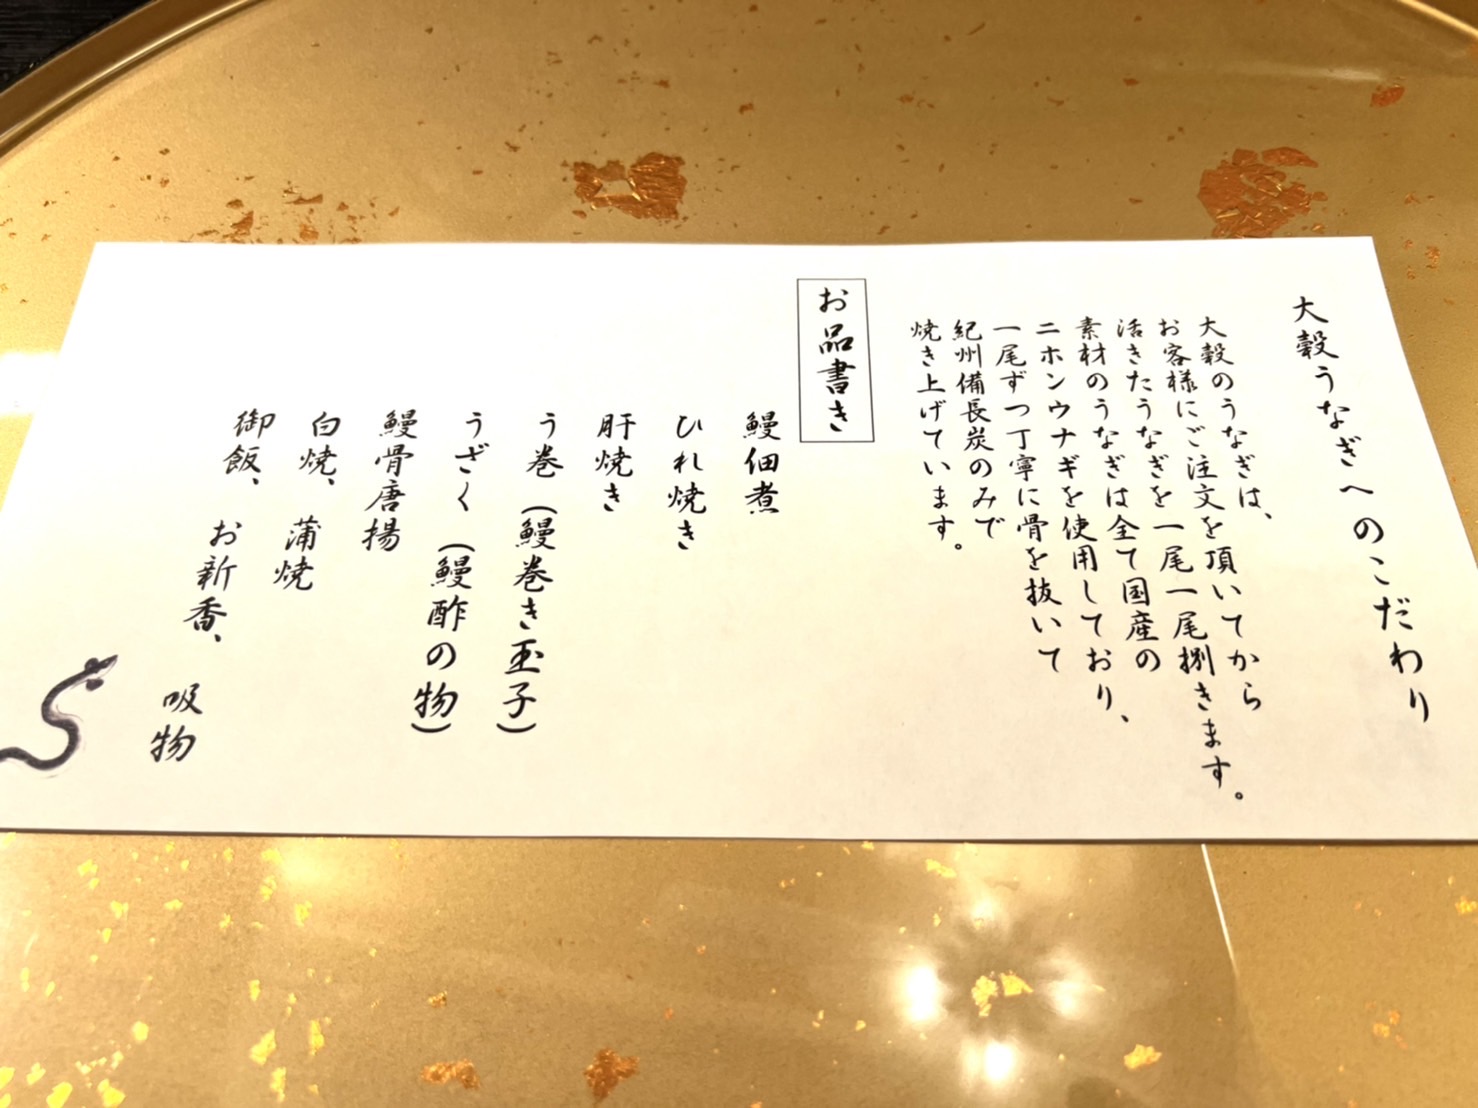 大穀うなぎへのこだわり
大穀のうなぎは、
お客様にご注文を頂いてから
活きたうなぎを一尾一尾捌きます。
素材のうなぎは全て国産の
ニホンウナギを使用しており、
一尾ずつ丁寧に骨を抜いて
紀州備長炭のみで
焼き上げています。
お品書き
鰻佃煮
ひれ焼き
肝焼き
う巻（鰻巻き玉子）
うざく（鰻酢の物）
鰻骨唐揚
白焼、蒲焼
御飯、お新香、吸物